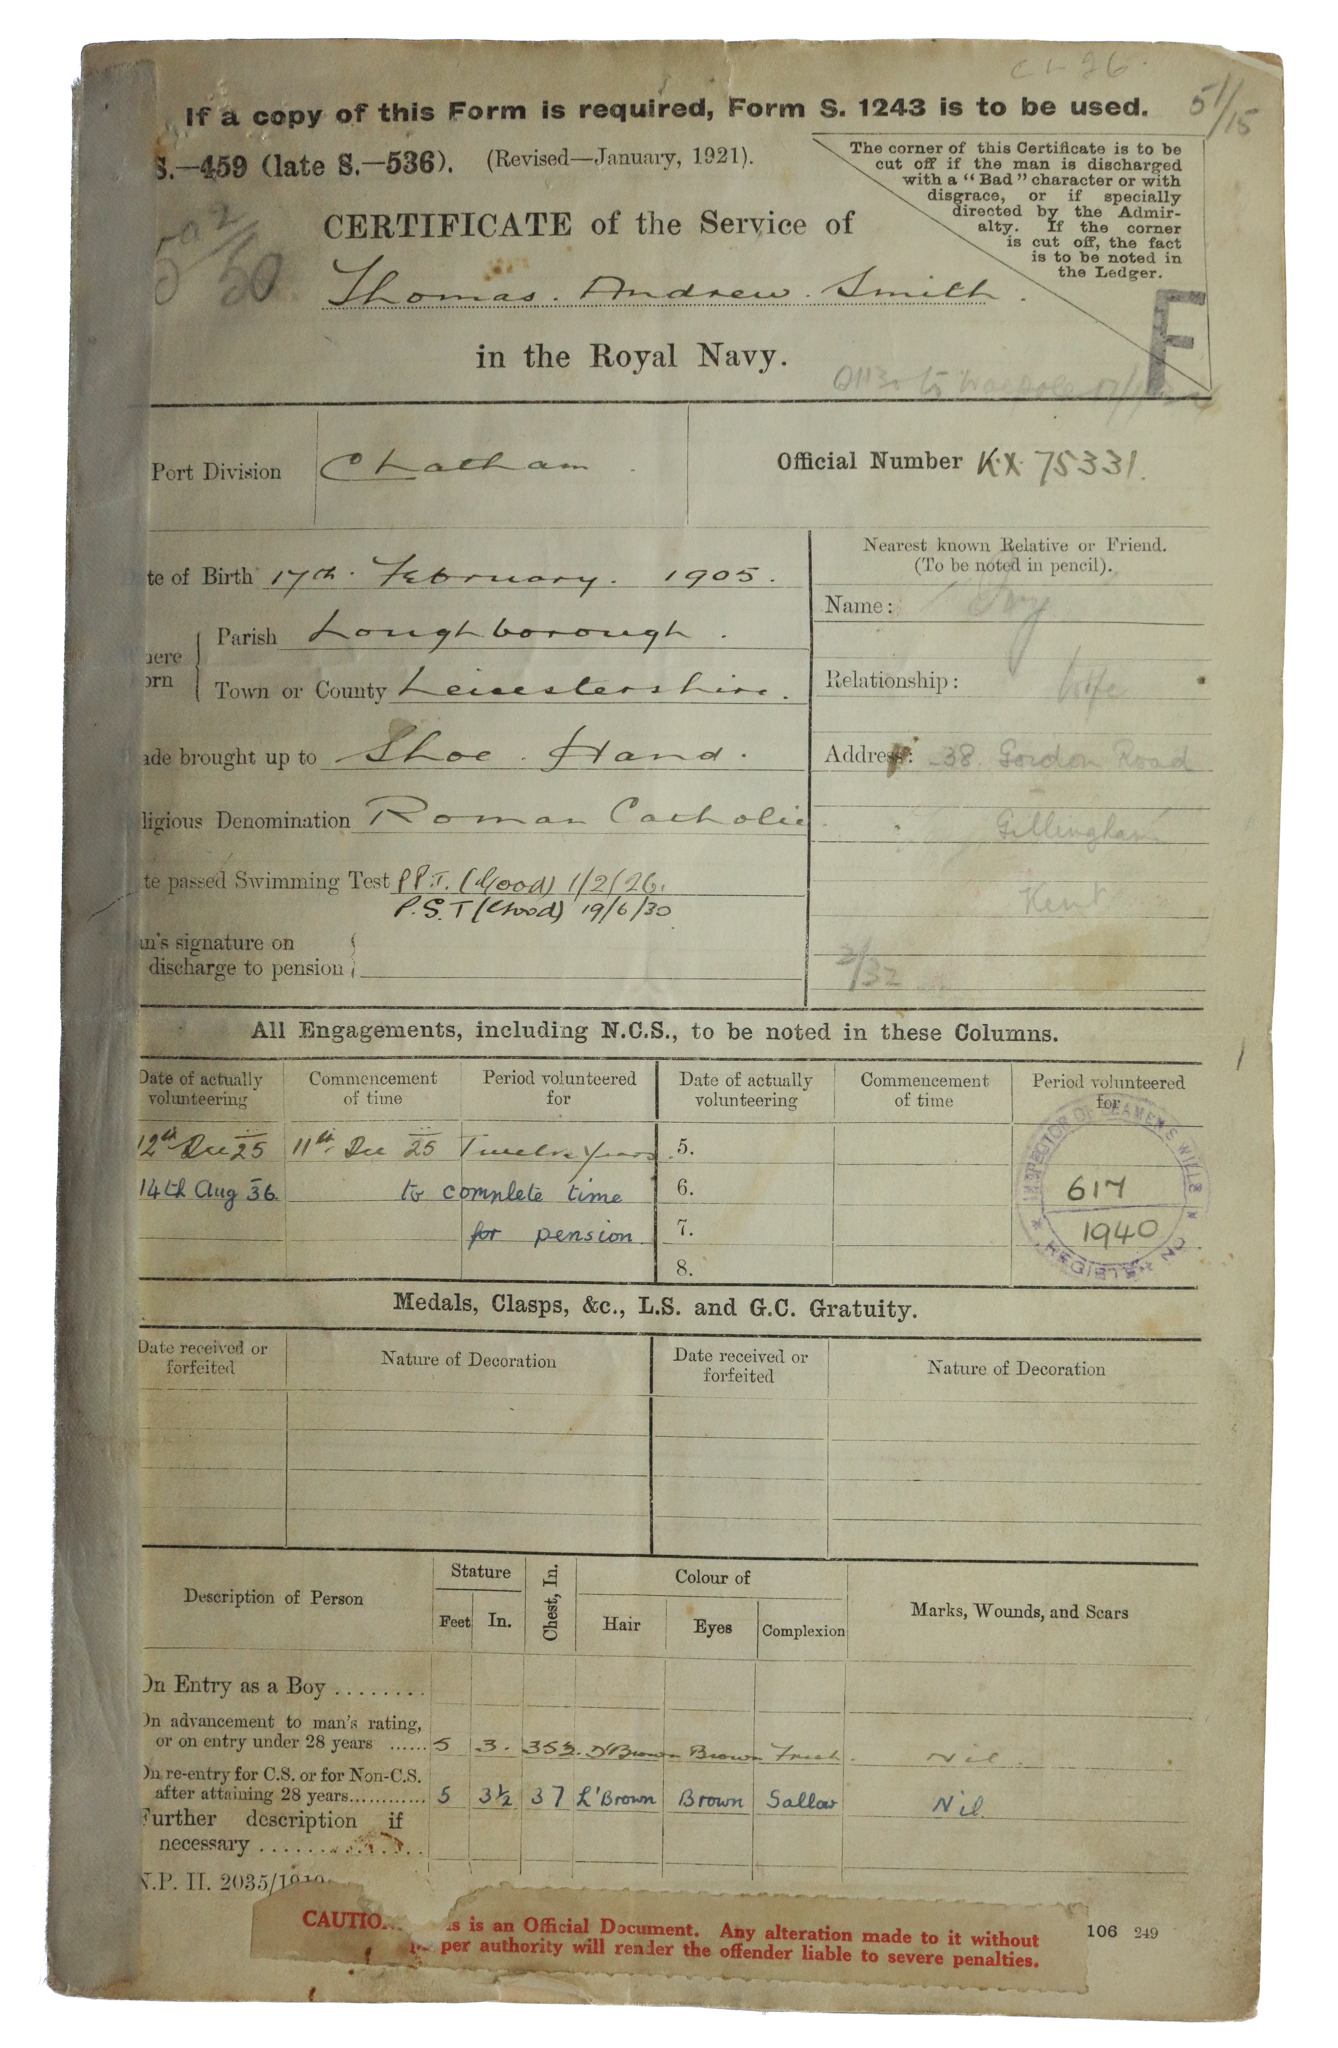 If a copy of this Form is required, Form S. 1243 is to be used.
51/15
S.—459 (late S.—536). (Revised—January, 1921).
The corner of this Certificate is to be
cut off if the man is discharged
with a “Bad” character or with
disgrace, or if specially
directed by the Admir-
alty. If the corner
is cut off, the fact
is to be noted in
the Ledger.
CERTIFICATE of the Service of
Thomas. Andrew. Smith.
in the Royal Navy.
F
Port Division Chatham.
Official Number K.X. 75331.
te of Birth 17th. February. 1905.
Nearest known Relative or Friend.
(To be noted in pencil).
Name: Ivy
here
orn
Parish Loughborough.
Town or County Leicestershire.
Relationship: Wife
ade brought up to Shoe. Hand.
Address: 38 Gordon Road
ligious Denomination Roman Catholic
Gillingham
te passed Swimming Test P.P.T. (Good) 1/2/26.
P.S.T (Good) 19/6/30
Kent
an's signature on
discharge to pension
2/32
All Engagements, including N.C.S., to be noted in these Columns.
Date of actually volunteering Commencement of time Period volunteered for Date of actually volunteering Commencement of time Period volunteered for
12th Dec 25 11th Dec 25 Twelve Years 5.
14th Aug 36 to complete time 6.
for pension 7.
8.
INSPECTOR OF SEAMEN'S WILLS
617
1940
REGISTER
Medals, Clasps, &c., L.S. and G.C. Gratuity.
Date received or forfeited Nature of Decoration Date received or forfeited Nature of Decoration
Description of Person Stature Chest, In. Colour of Marks, Wounds, and Scars
Feet In. Hair Eyes Complexion
On Entry as a Boy ........
On advancement to man's rating,
or on entry under 28 years ...... 5 3. 35½. D'Brown Brown Fresh. Nil.
On re-entry for C.S. or for Non-C.S.
after attaining 28 years............ 5 3½ 37 L'Brown Brown Sallow Nil.
Further description if
necessary
N.P. II. 2035/1919
CAUTIO
s is an Official Document. Any alteration made to it without
per authority will render the offender liable to severe penalties.
106 249